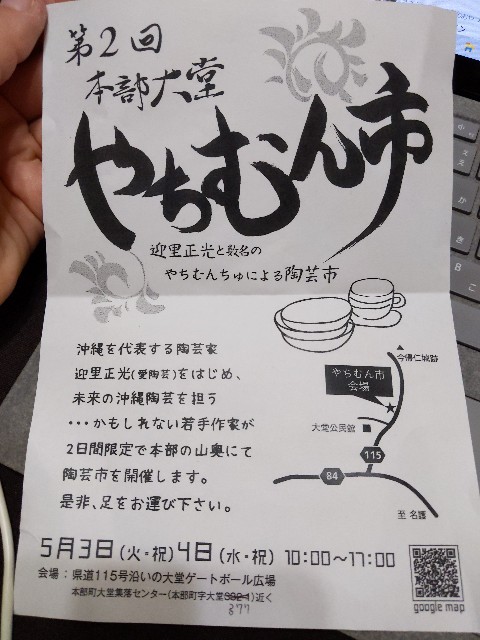 第2回
本部大堂
やちむん市
迎里正光と数名の
やちむんちゅによる陶芸市
沖縄を代表する陶芸家
迎里正光(愛陶芸)をはじめ、
未来の沖縄陶芸を担う
・・・かもしれない若手作家が
2日間限定で本部の山奥にて
陶芸市を開催します。
是非、足をお運び下さい。
今帰仁城跡
やちむん市
会場
大堂公民館
115
84
至 名護
5月3日(火・祝)4日(水・祝) 10:00〜17:00
会場:県道115号沿いの大堂ゲートボール広場
本部町大堂集落センター(本部町字大堂392-1)近く
377
google map